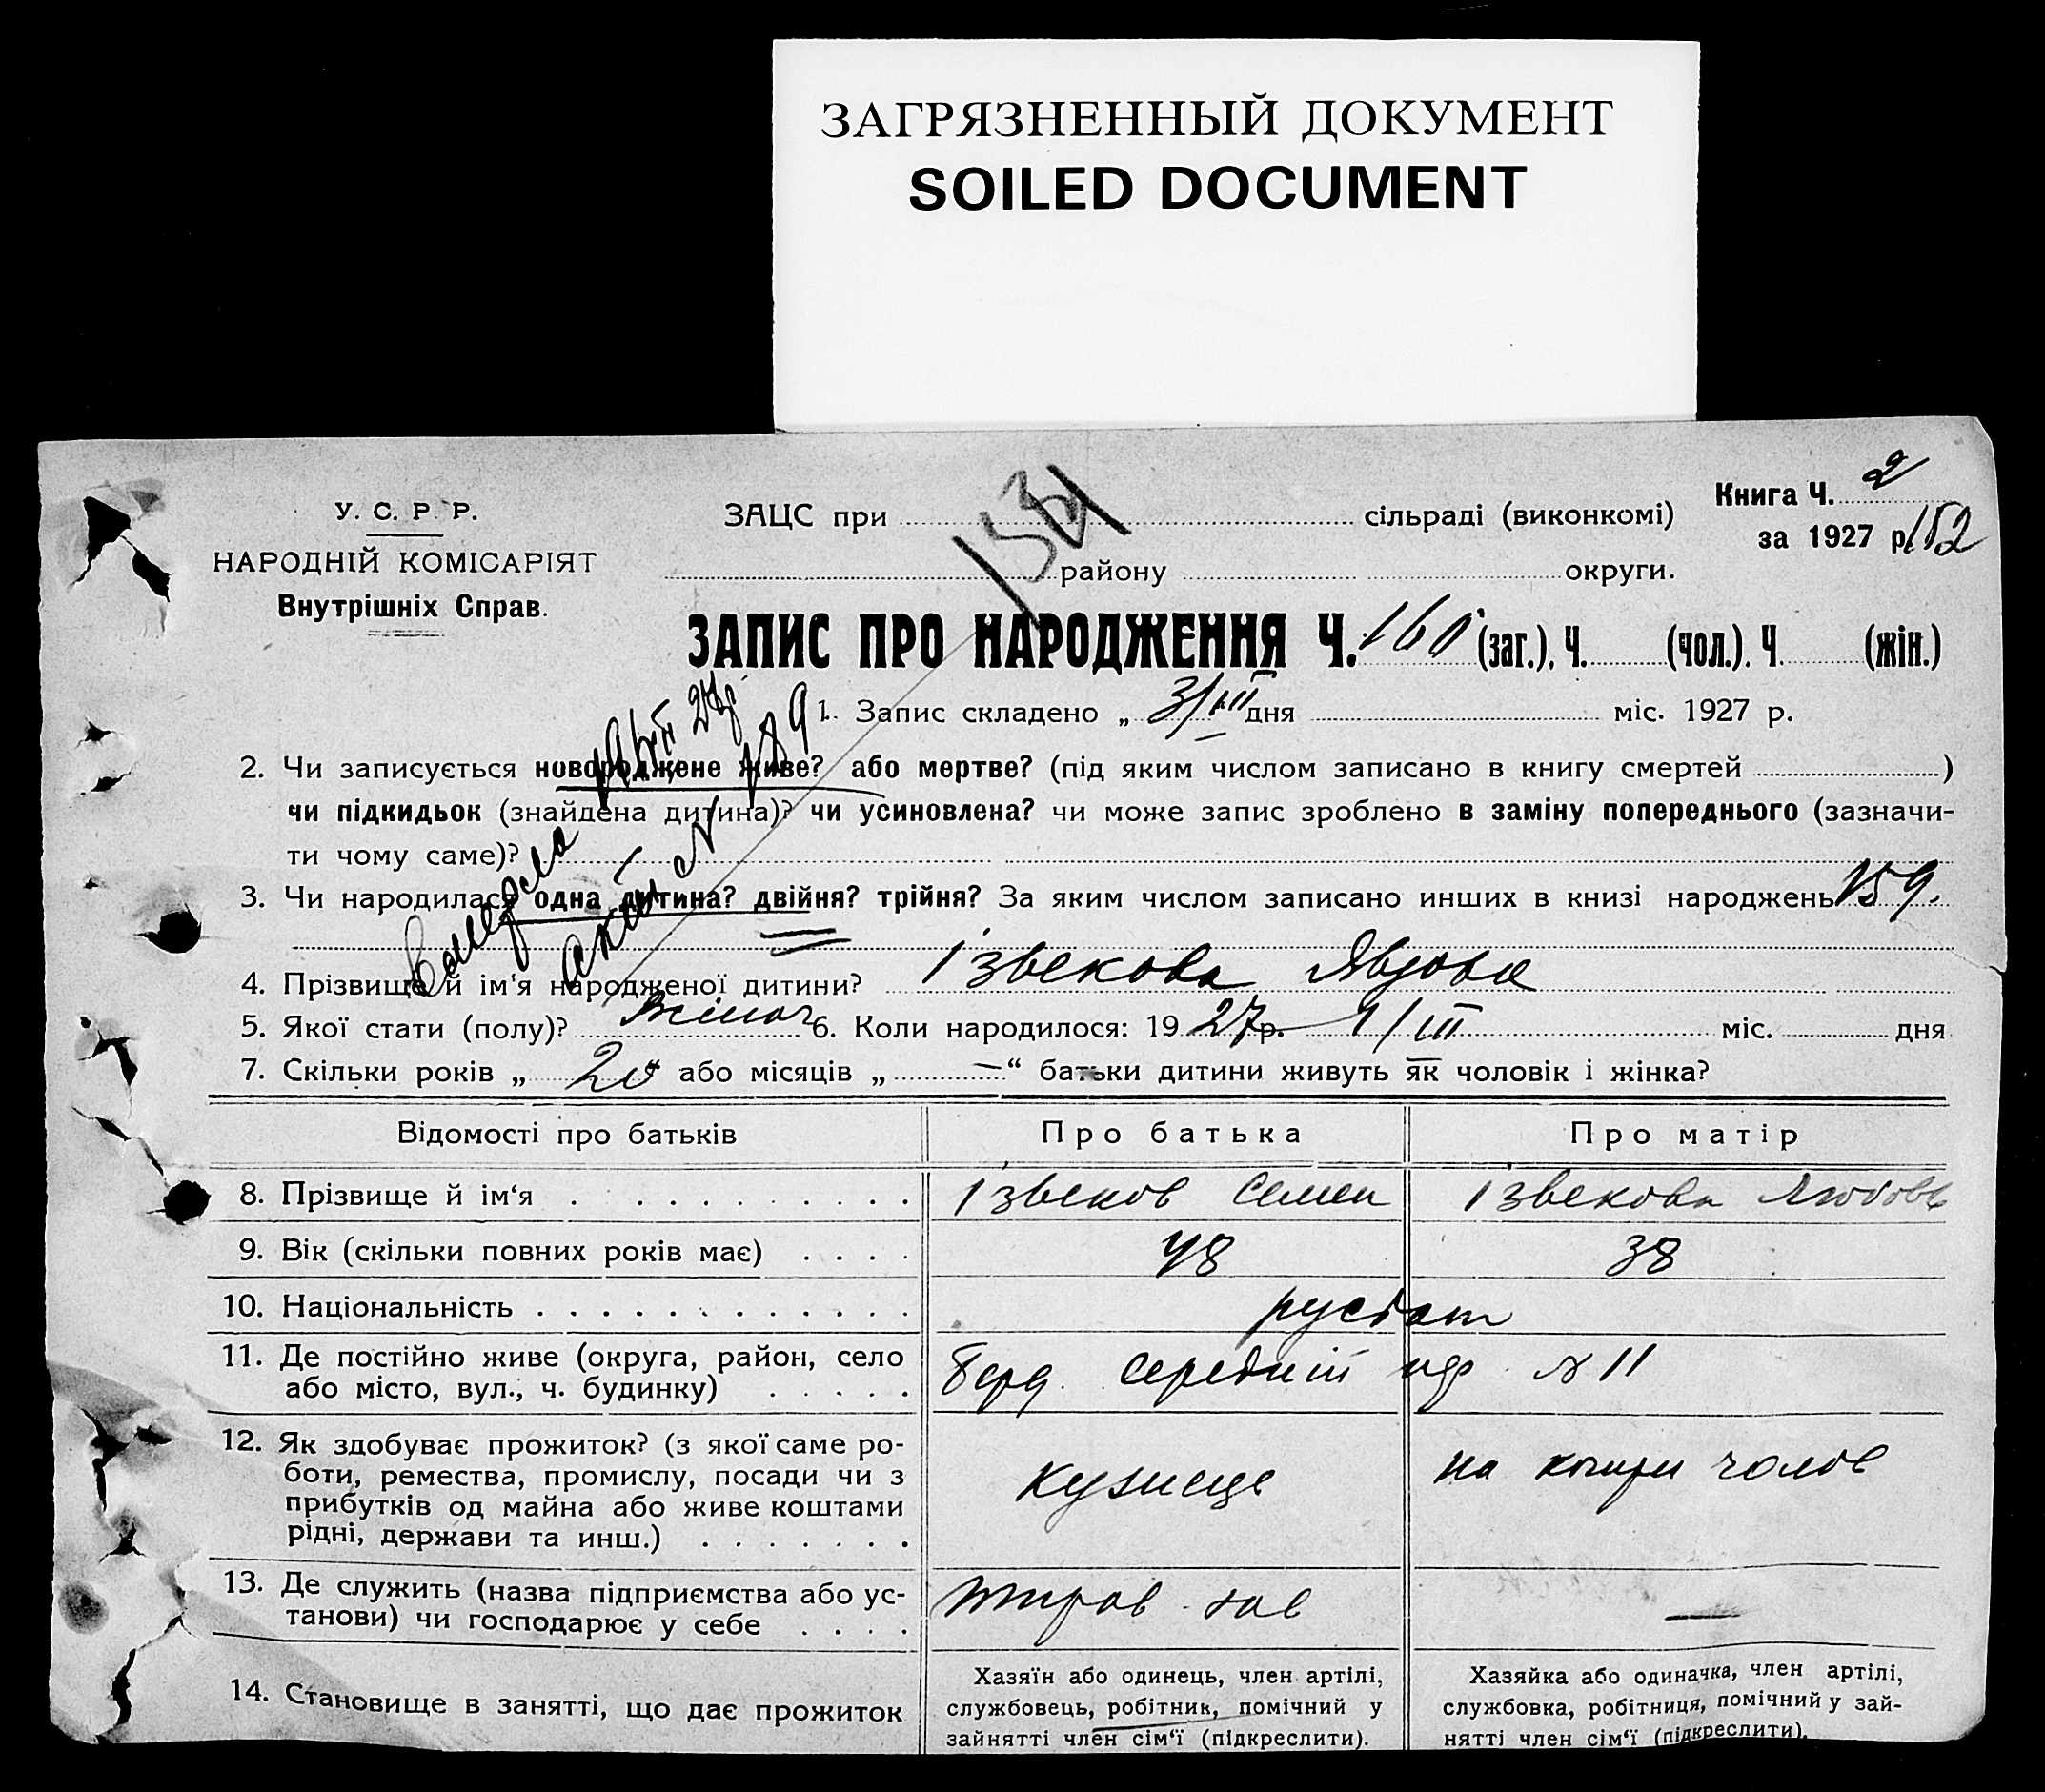 ЗАГРЯЗНЕННЫЙ ДОКУМЕНТ
SOILED DOCUMENT
У. С. Р. Р.
НАРОДНІЙ КОМІСАРІЯТ
Внутрішніх Справ.
ЗАЦС при сільраді (виконкомі)
району округи.
Книга Ч. 2
за 1927 р. 152
ЗАПИС ПРО НАРОДЖЕННЯ Ч. 160 (заг.), Ч. (чол.). Ч. (жін.)
1. Запис складено „ 3/III дня міс. 1927 р.
2. Чи записується новороджене живе? або мертве? (під яким числом записано в книгу смертей )
чи підкидьок (знайдена дитина)? чи усиновлена? чи може запис зроблено в заміну попереднього (зазначи-
ти чому саме)?
3. Чи народилася одна дитина? двійня? трійня? За яким числом записано инших в книзі народжень 159.
Померла
акт N 189
4. Прізвище й ім‘я народженої дитини? Ізвекова Явдока
5. Якої стати (полу)? жіноч 6. Коли народилося: 1927 р. 1/III міс. дня
7. Скільки років „ 20 або місяців „ —“ батьки дитини живуть як чоловік і жінка?
Відомості про батьків Про батька Про матір
8. Прізвище й ім‘я Ізвеков Семен Ізвекова Любовь
9. Вік (скільки повних років має) 48 38
10. Національність
11. Де постійно живе (округа, район, село
або місто, вул., ч. будинку) Берд. Середній N 11
12. Як здобуває прожиток? (з якої саме ро-
боти, ремества, промислу, посади чи з
прибутків од майна або живе коштами
рідні, держави та инш.)
кузнець
на кошти чолов
13. Де служить (назва підприємства або ус-
танови) чи господарює у себе
зав —
14. Становище в занятті, що дає прожиток
Хазяїн або одинець, член артілі,
службовець, робітник, помічний у
зайнятті член сім‘ї (підкреслити).
Хазяйка або одиначка, член артілі,
службовка, робітниця, помічний у зай-
нятті член сім‘ї (підкреслити).